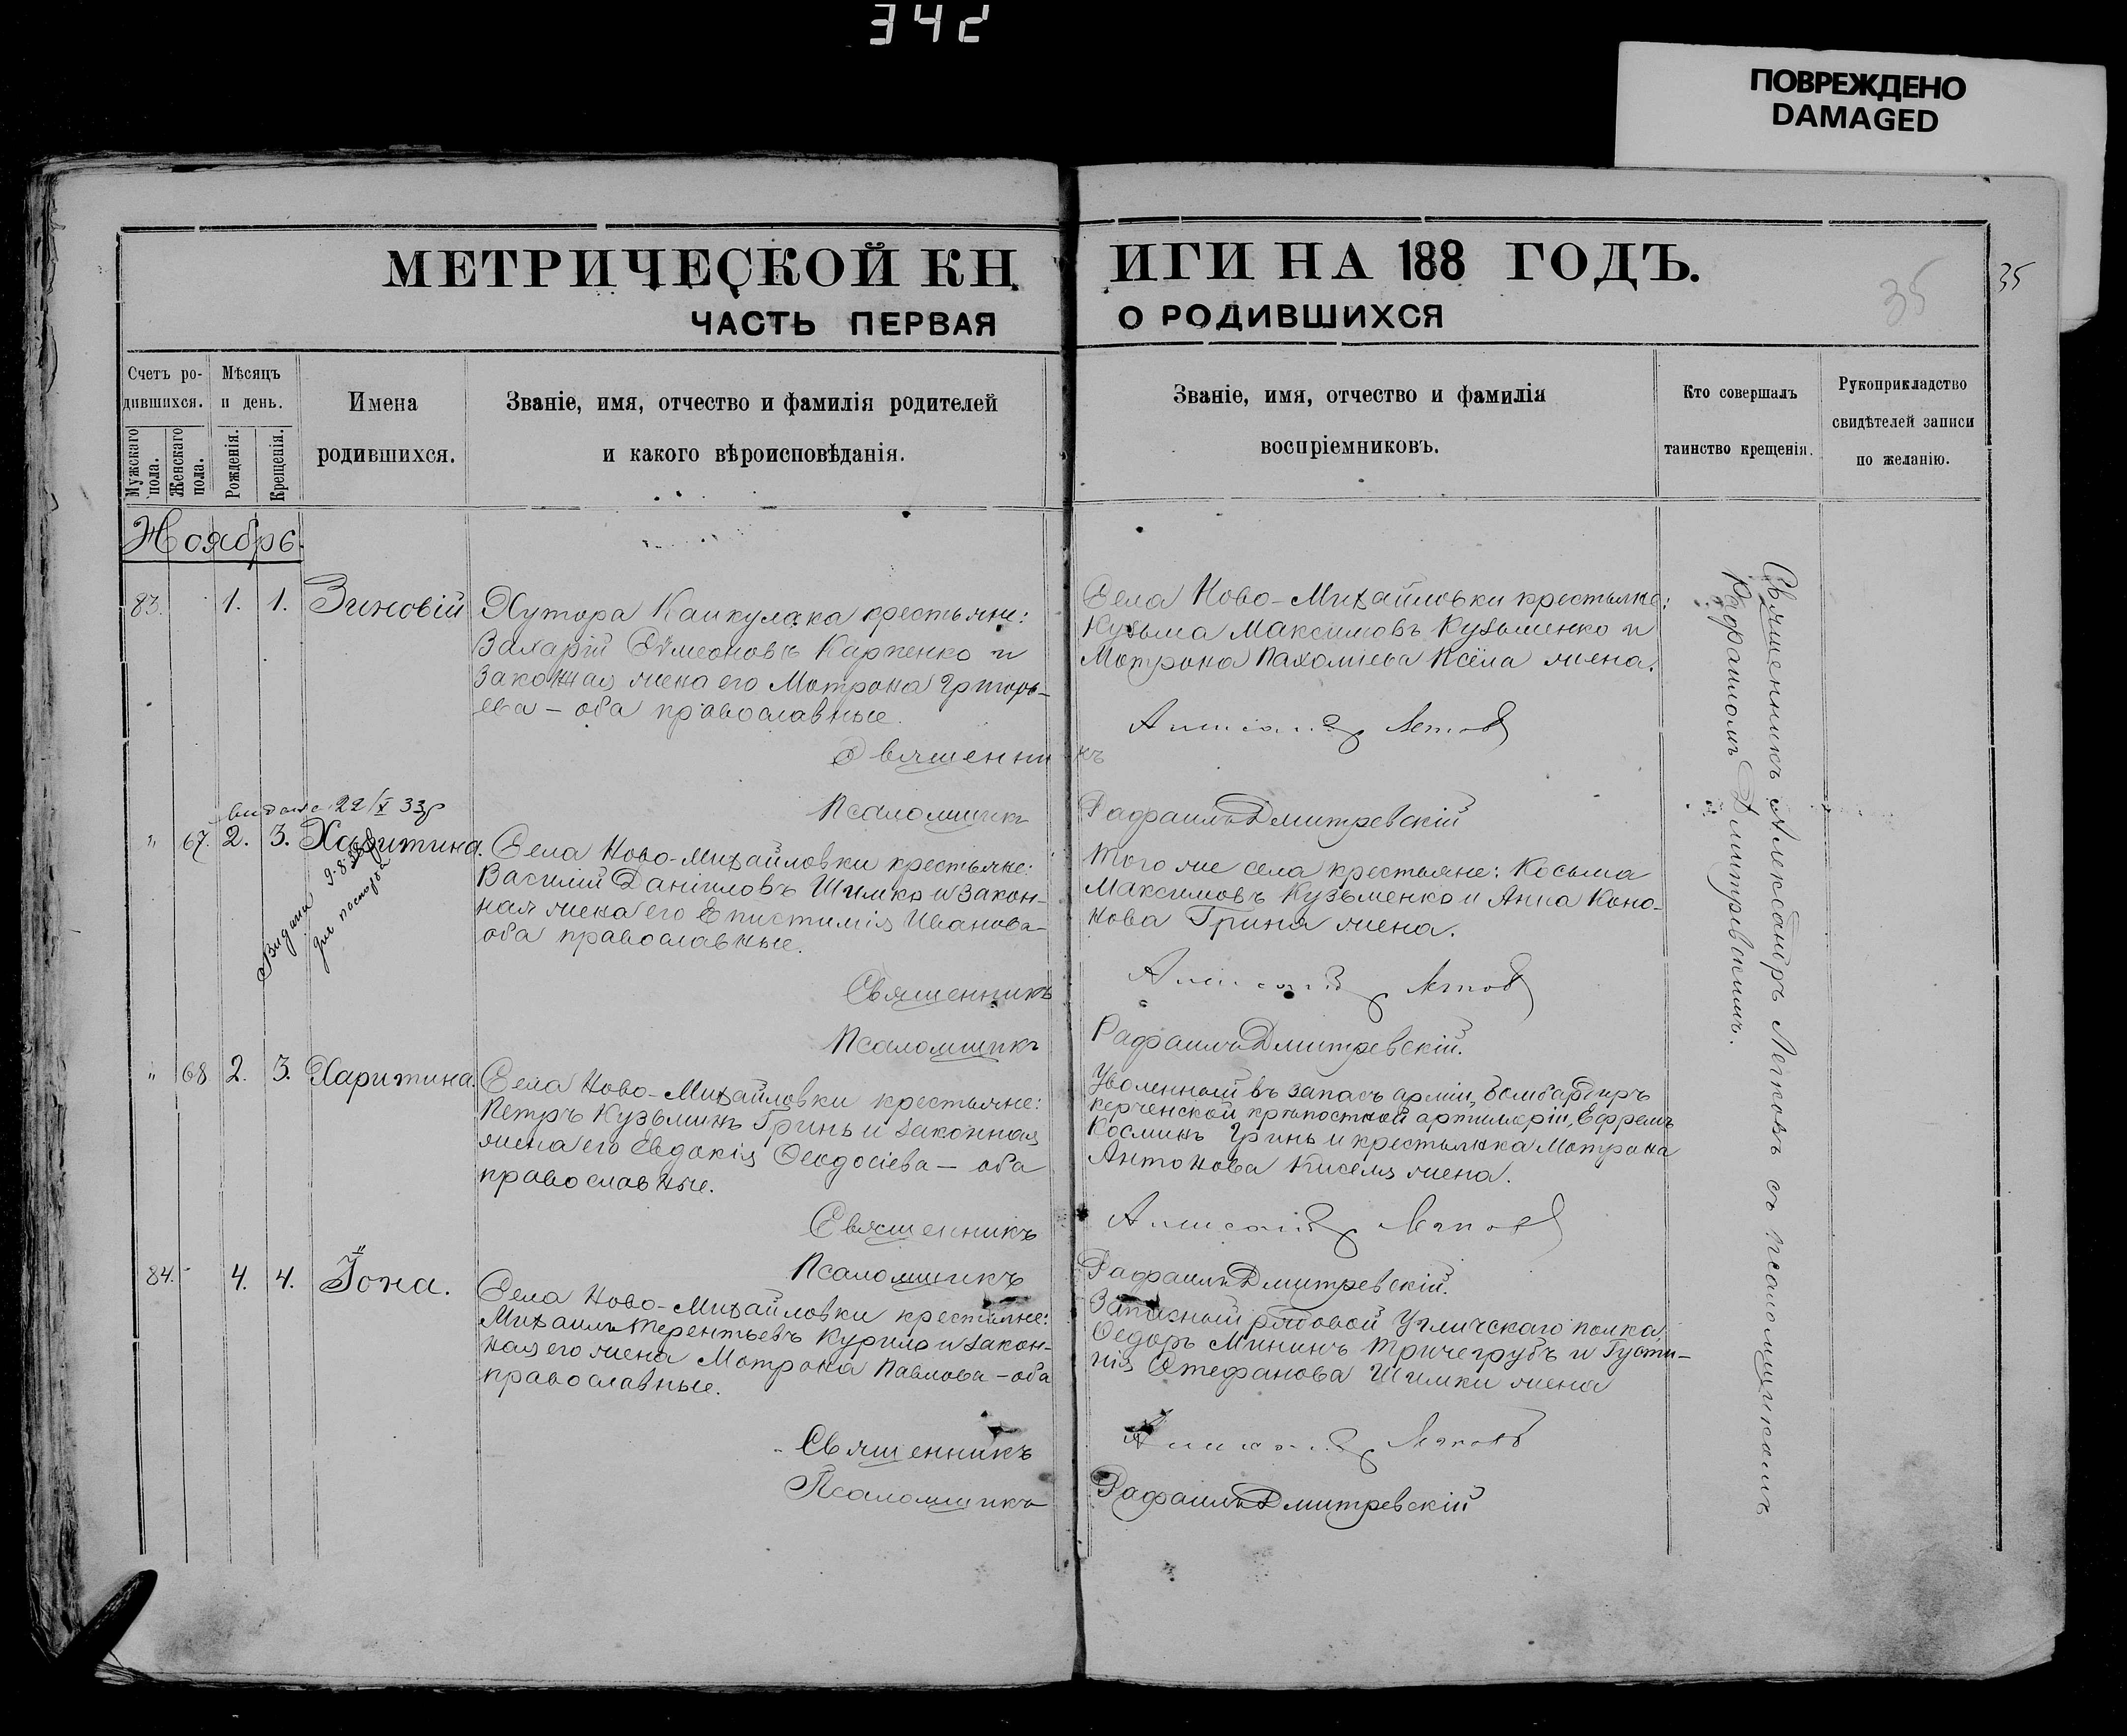 342
ПОВРЕЖДЕНО
DAMAGED
МЕТРИЧЕСКОЙ КНИГИ НА 188 ГОДЪ.
35
35
ЧАСТЬ ПЕРВАЯ О РОДИВШИХСЯ
Счетъ ро-
дившихся.
Мужскаго пола.
Женскаго пола.
Мѣсяцъ
и день.
Рожденія.
Крещенія.
Имена
родившихся.
Званіе, имя, отчество и фамилія родителей
и какого вѣроисповѣданія.
Званіе, имя, отчество и фамилія
воспріемниковъ.
Кто совершалъ
таинство крещенія.
Рукоприкладство
свидѣтелей записи
по желанію.
Ноябрь.
83. 1. 1. Зиновій
Хутора Канкулака крестьяне:
Захарій Сѵмеоновъ Карпенко и
законная жена его Мотрона Григорь-
ева – оба православные.
Села Ново-Михайловки крестьяне:
Кузьма Максимовъ Кузьменко и
Мотрона Пахоміева Ксёла жена.
Священникъ
Псаломщикъ Рафаилъ Дмитревскій
видана 22/X 33р
" 67. 2. 3. Харитина.
Видана
для паспорта
Села Ново-Михайловки крестьяне:
Василій Даніиловъ Шимко и закон-
ная жена его Епистимія Иванова –
оба православные.
Того же села крестьяне: Косьма
Максимовъ Кузьменко и Анна Коно-
нова Гриня жена.
Священникъ
Псаломщикъ Рафаилъ Дмитревскій.
" 68 2. 3. Харитина.
Села Ново-Михайловки крестьяне:
Петръ Кузьминъ Гринь и законная
жена его Евдокія Ѳеодосіева – оба
православные.
Уволенный въ запасъ арміи, бомбардиръ
керченской крѣпостной артиллеріи, Ефремъ
Косминъ Гринь и крестьянка Мотрона
Антонова Киселя жена.
Священникъ
Псаломщикъ Рафаилъ Дмитревскій.
84. " 4. 4. Іона.
Села Ново-Михайловки крестьяне:
Михаилъ Терентьевъ Курило и закон-
ная его жена Мотрона Павлова – оба
православные.
Запасный рядовой Угличскаго полка
Ѳедоръ Мининъ Тричегрубъ и Густи-
нія Стефанова Шимки жена
Священникъ
Псаломщикъ Рафаилъ Дмитревскій
Священникъ Александръ Легковъ съ псаломщикомъ
Рафаиломъ Дмитревскимъ.